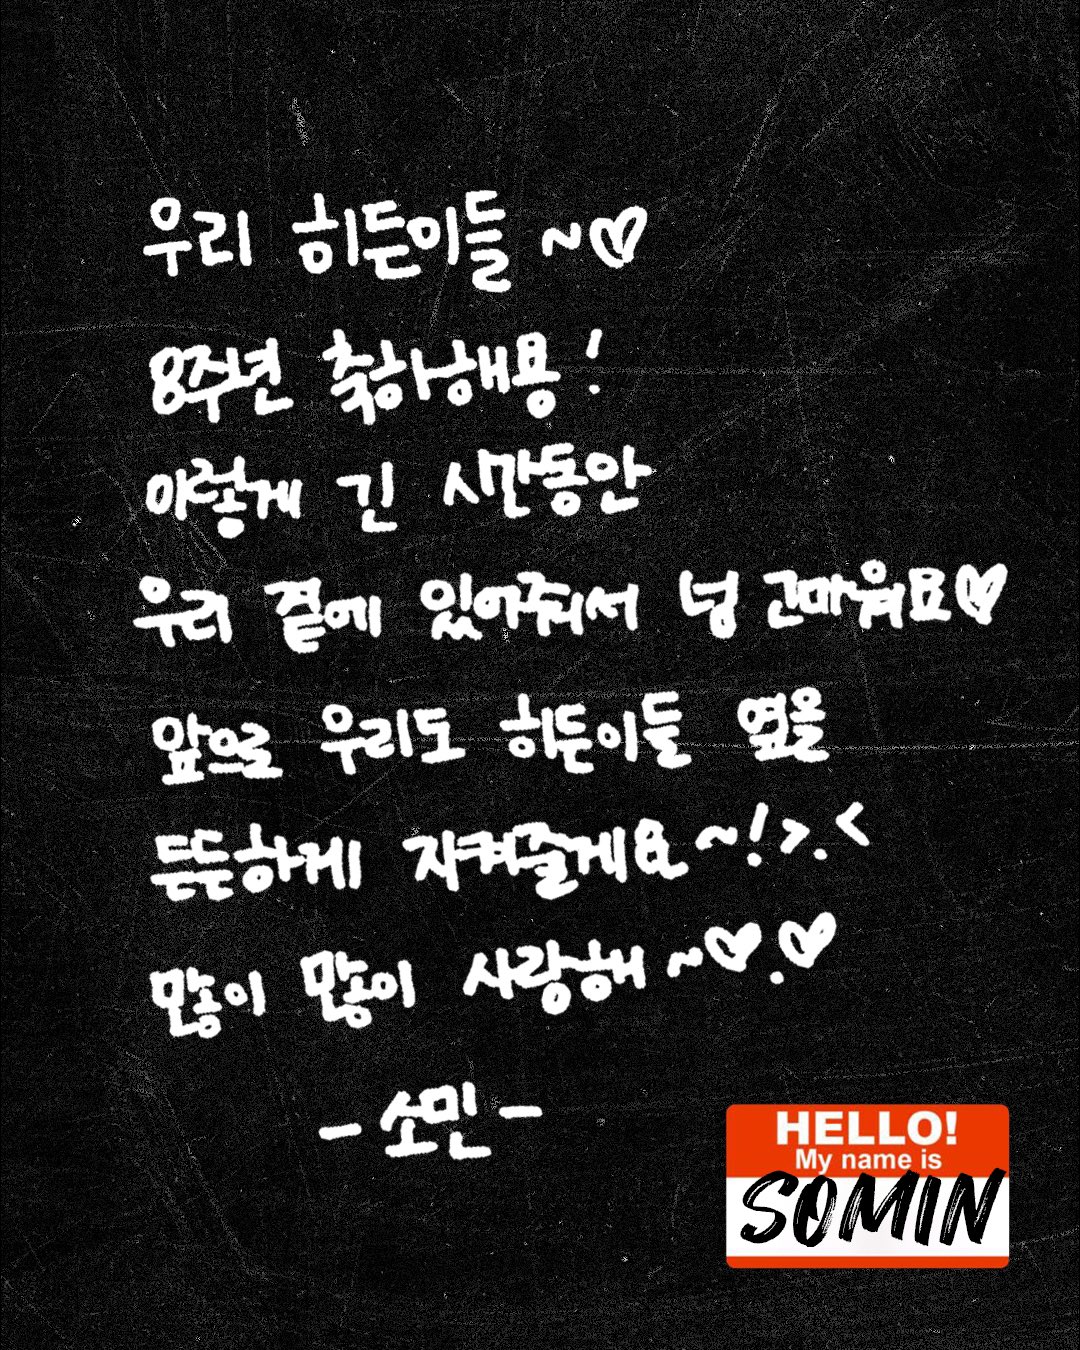 우리 히든이들 ~♡
8주년 축하해용!
이렇게 긴 시간동안
우리 곁에 있어줘서 넝 고마워요♡
앞으로 우리도 히든이들 옆을
듣든하게 지켜줄게요~! >.<
많이 많이 사랑해~♡.♡
- 소민 -
HELLO!
My name is
SOMIN